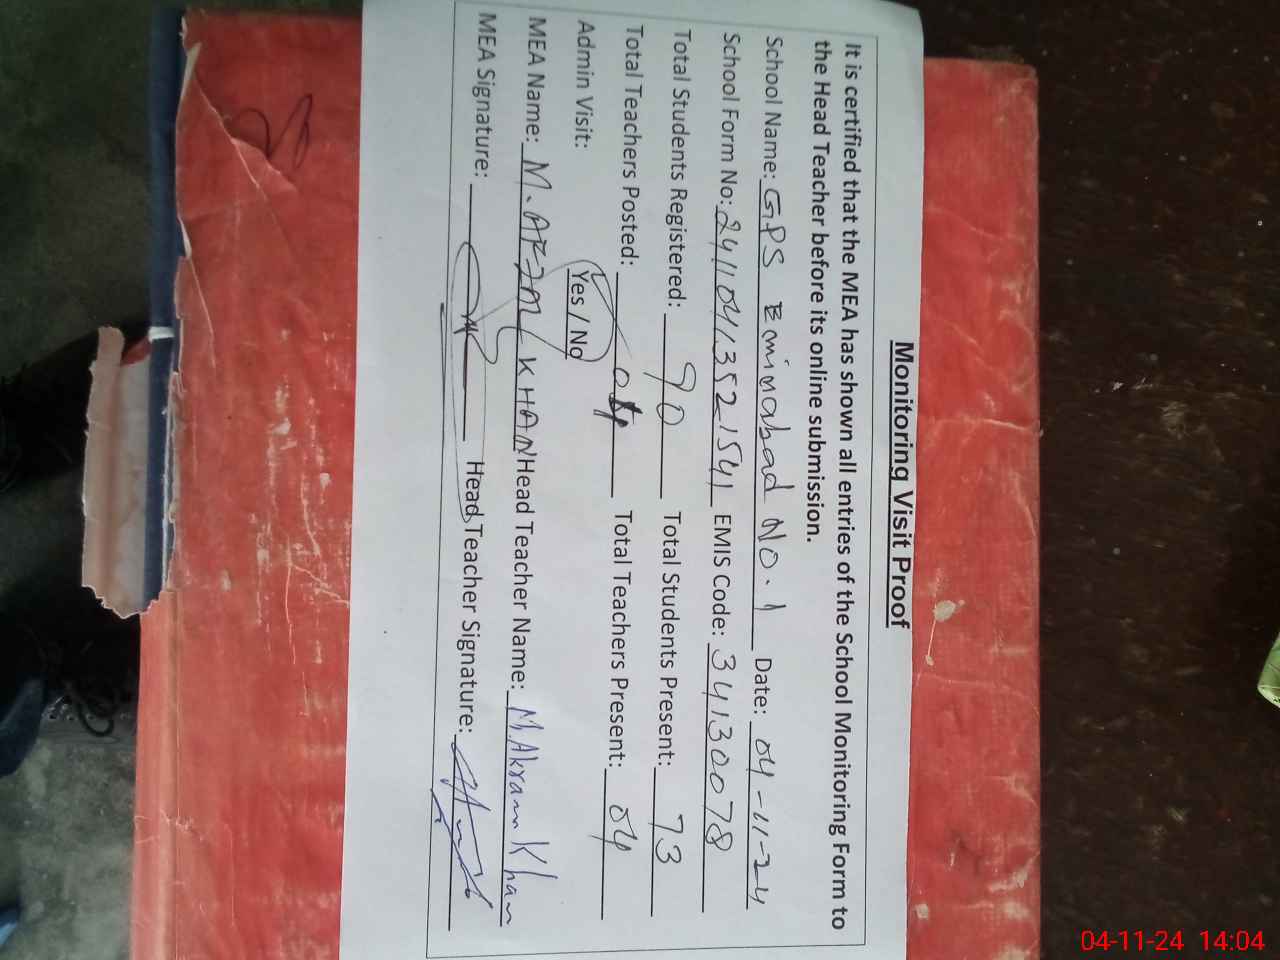 Monitoring Visit Proof
It is certified that the MEA has shown all entries of the School Monitoring Form to
the Head Teacher before its online submission.
School Name: GPS Eminabad No. 1 Date: 04-11-24
School Form No: 24110413521541 EMIS Code: 34130078
Total Students Registered: 90 Total Students Present: 73
Total Teachers Posted: 04 Total Teachers Present: 04
Admin Visit: Yes / No
MEA Name: M. AFZAL KHAN Head Teacher Name: M Akram Khan
MEA Signature: Head Teacher Signature:
04-11-24 14:04